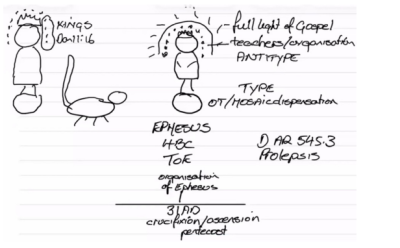 KINGS
Dan 11:16
full light of Gospel
teachers/organisation
ANTITYPE
TYPE
OT/MOSAIC dispensation
EPHESUS
HBC
TOE
organisation
of Ephesus
① AR 545.3
Prolepsis
31AD
crucifixion/ascension
pentecost